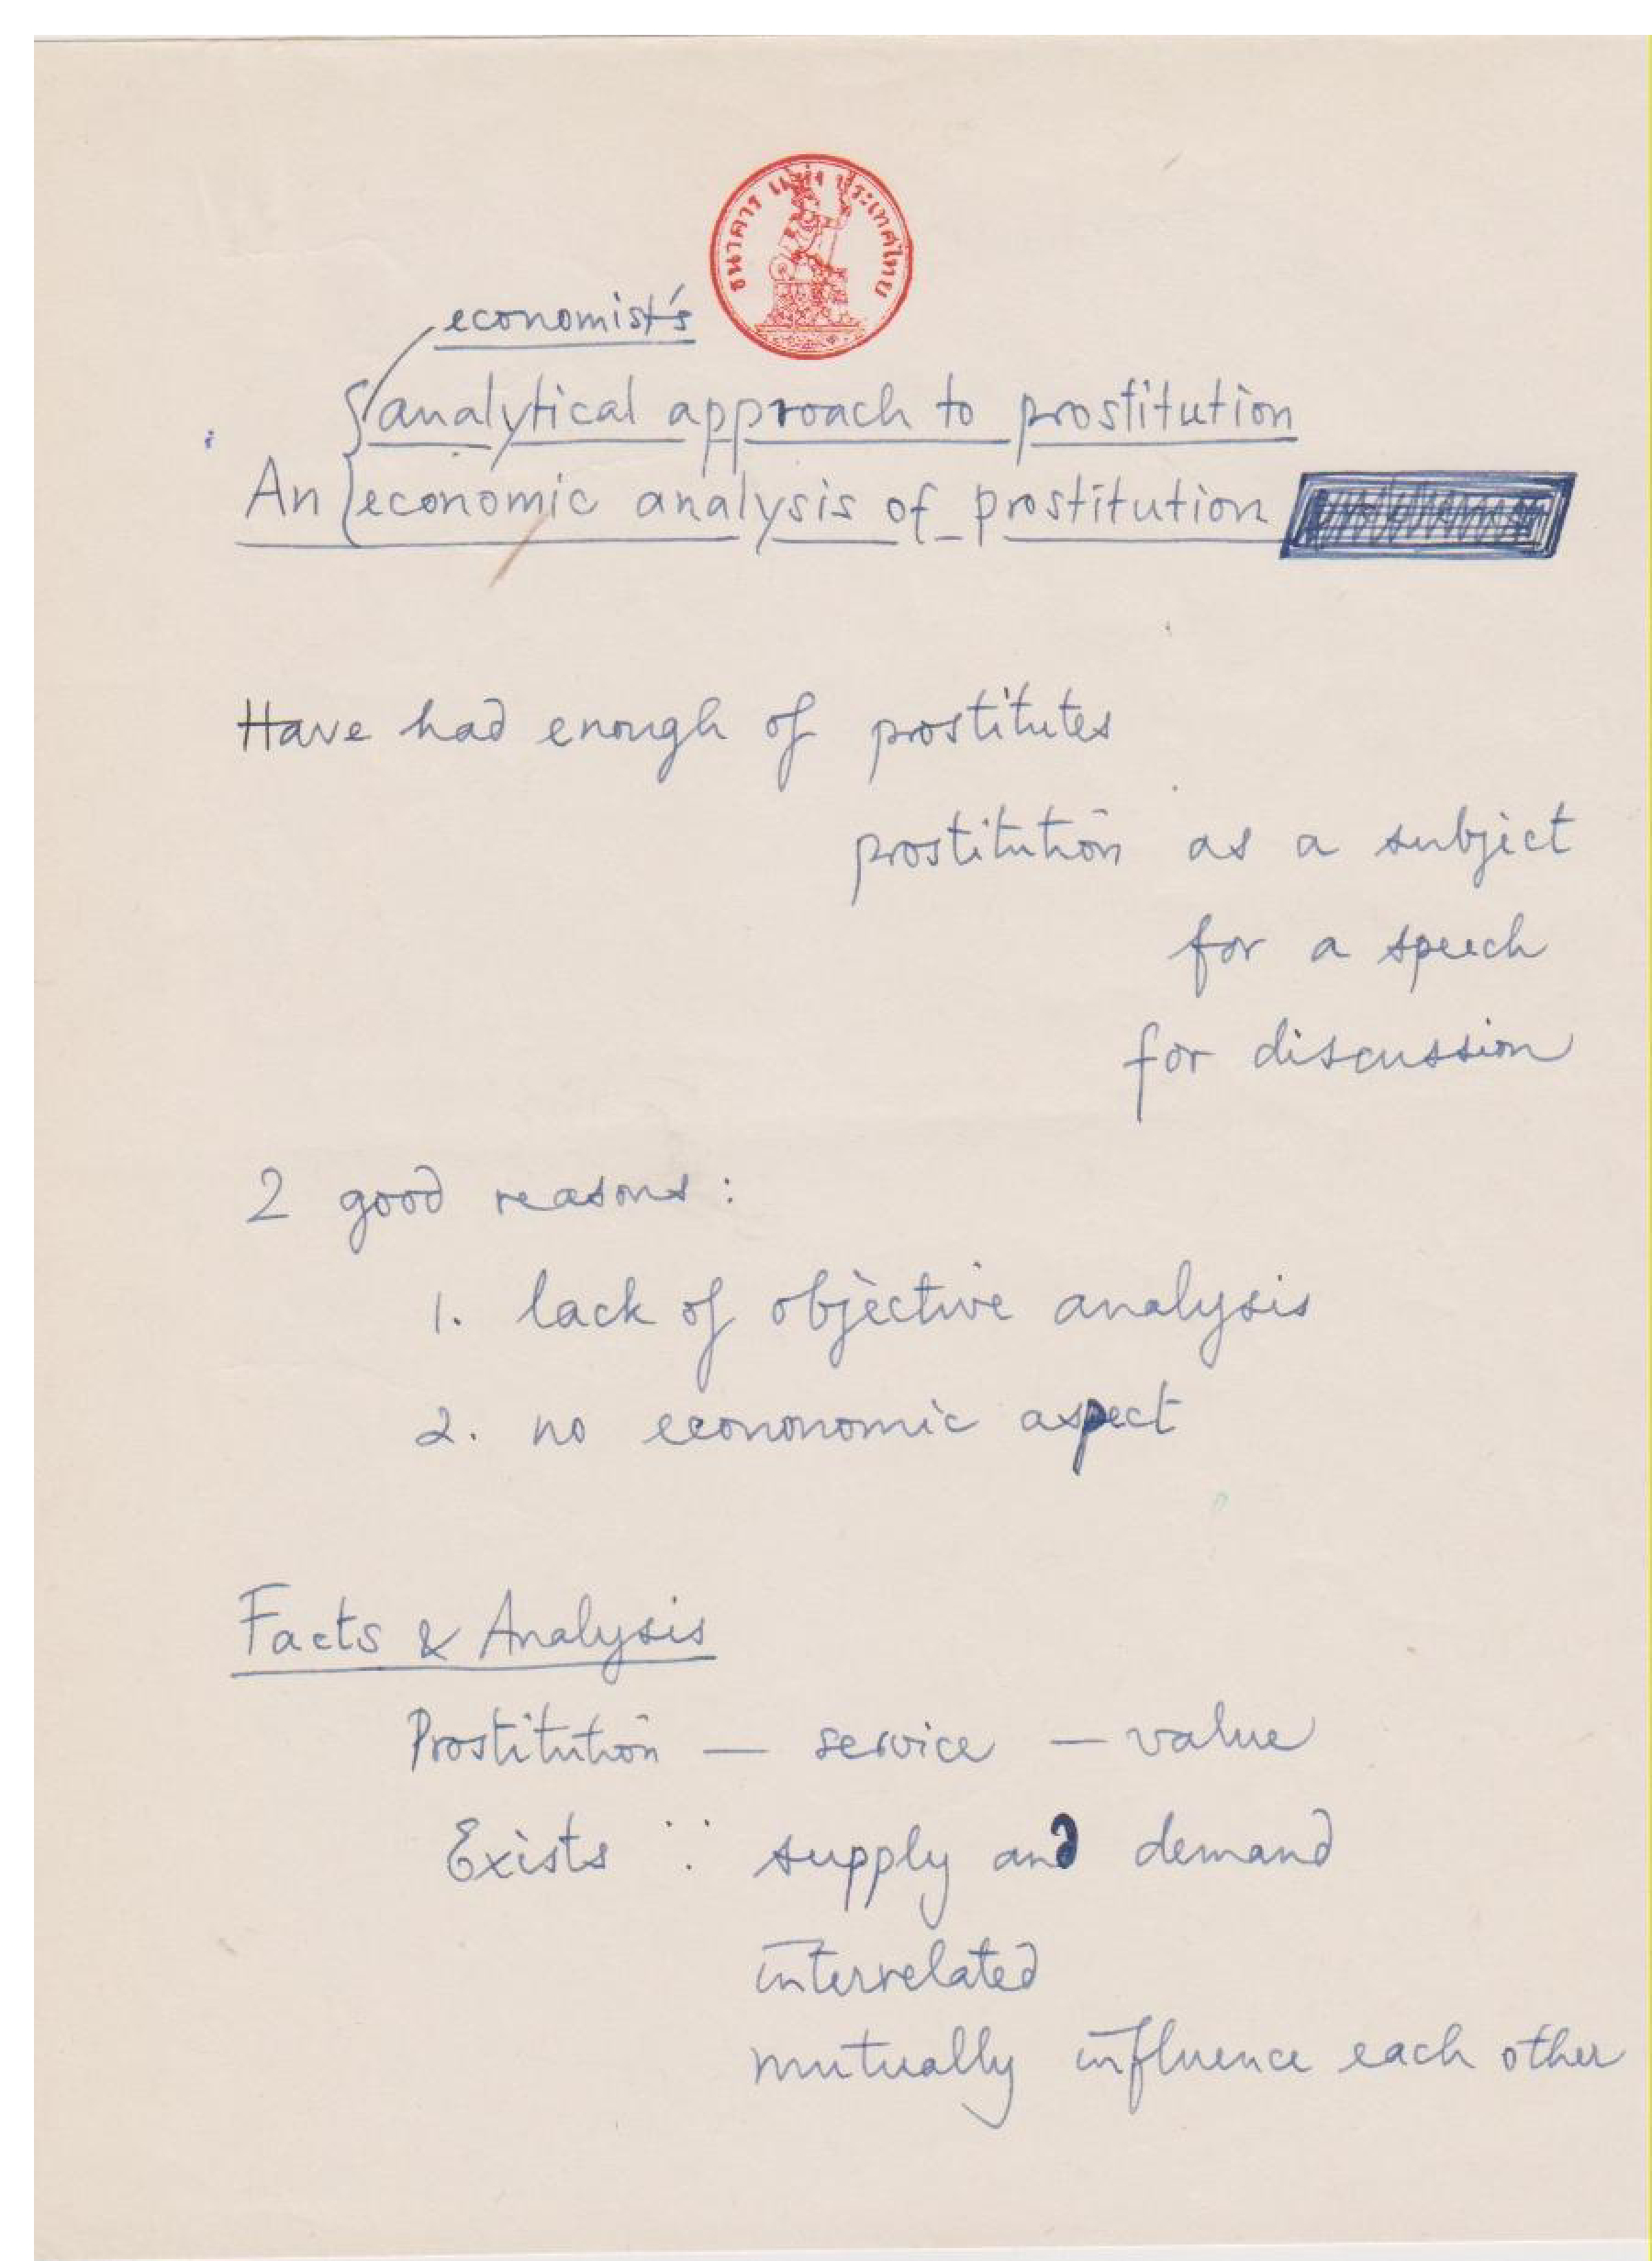 ธนาคาร แห่ง ประเทศไทย
economist's
analytical approach to prostitution
An economic analysis of prostitution
Have had enough of prostitutes
prostitution as a subject
for a speech
for discussion
2 good reasons:
1. lack of objective analysis
2. no econonomic aspect
Facts & Analysis
Prostitution — service — value
Exists ∵ supply and demand
interrelated
mutually influence each other